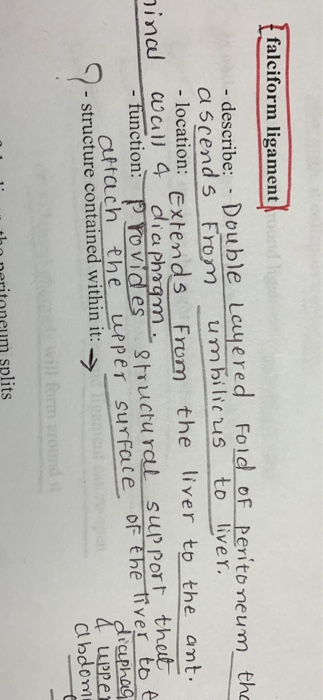 falciform ligament
- describe: - Double Layered Fold of peritoneum
ascends From umbilicus to liver.
- location: Extends From the liver to the ant.
wall & diaphragm.
- function: provides structural support that
attach the upper surface of the liver to
& upper
? - structure contained within it: →
peritoneum splits